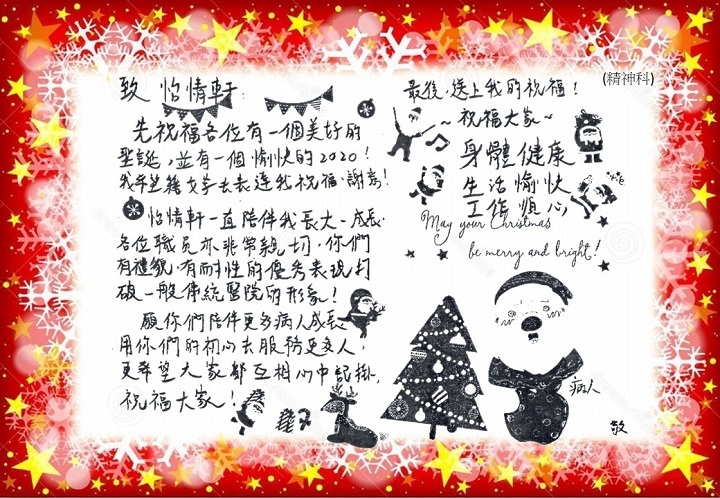 致 怡情軒：
先祝福各位有一個美好的
聖誕，並有一個愉快的2020！
我希望藉文字去表達我祝福、謝意！
怡情軒一直陪伴我長大、成長，
各位職員亦非常親切，你們
有禮貌，有耐性的優秀表現打
破一般傳統醫院的形象！
願你們陪伴更多病人成長，
用你們的初心去服務更多人，
更希望大家都互相心中記掛，
祝福大家！
(精神科)
最後，送上我的祝福！
~祝福大家~
身體健康
生活愉快
工作順心
May your Christmas
be merry and bright!
病人
敬